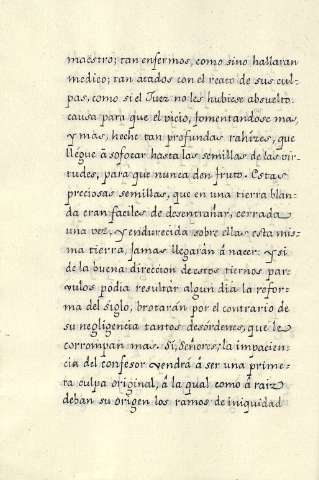 maestro; tan enfermos, como sino hallaran
medico; tan atados con el reato de sus cul-
pas, como si el Juez no les hubiese absuelto.
causa para que el vicio, fomentandose mas,
y mas, heche tan profundas rahizes, que
llégue á sofocar hasta las semillas de las vir-
tudes, para que nunca den fruto. Estas
preciosas semillas, que en una tierra blan-
da eran faciles de desentrañar, cerrada
una vez, y endurecida sobre ellas esta mis-
ma tierra, Jamas llegarán á nacer: Y si
de la buena direccion de estos tiernos par-
vulos podia resultar algun dia la refor-
ma del siglo, brotarán por el contrario de
su negligencia tantos desórdenes, que le
corrompan mas. Si, Señores; la impacien-
cia del confesor vendrá á ser una prime-
ra culpa original, á la qual como á raiz
deban su origen los ramos de iniquidad